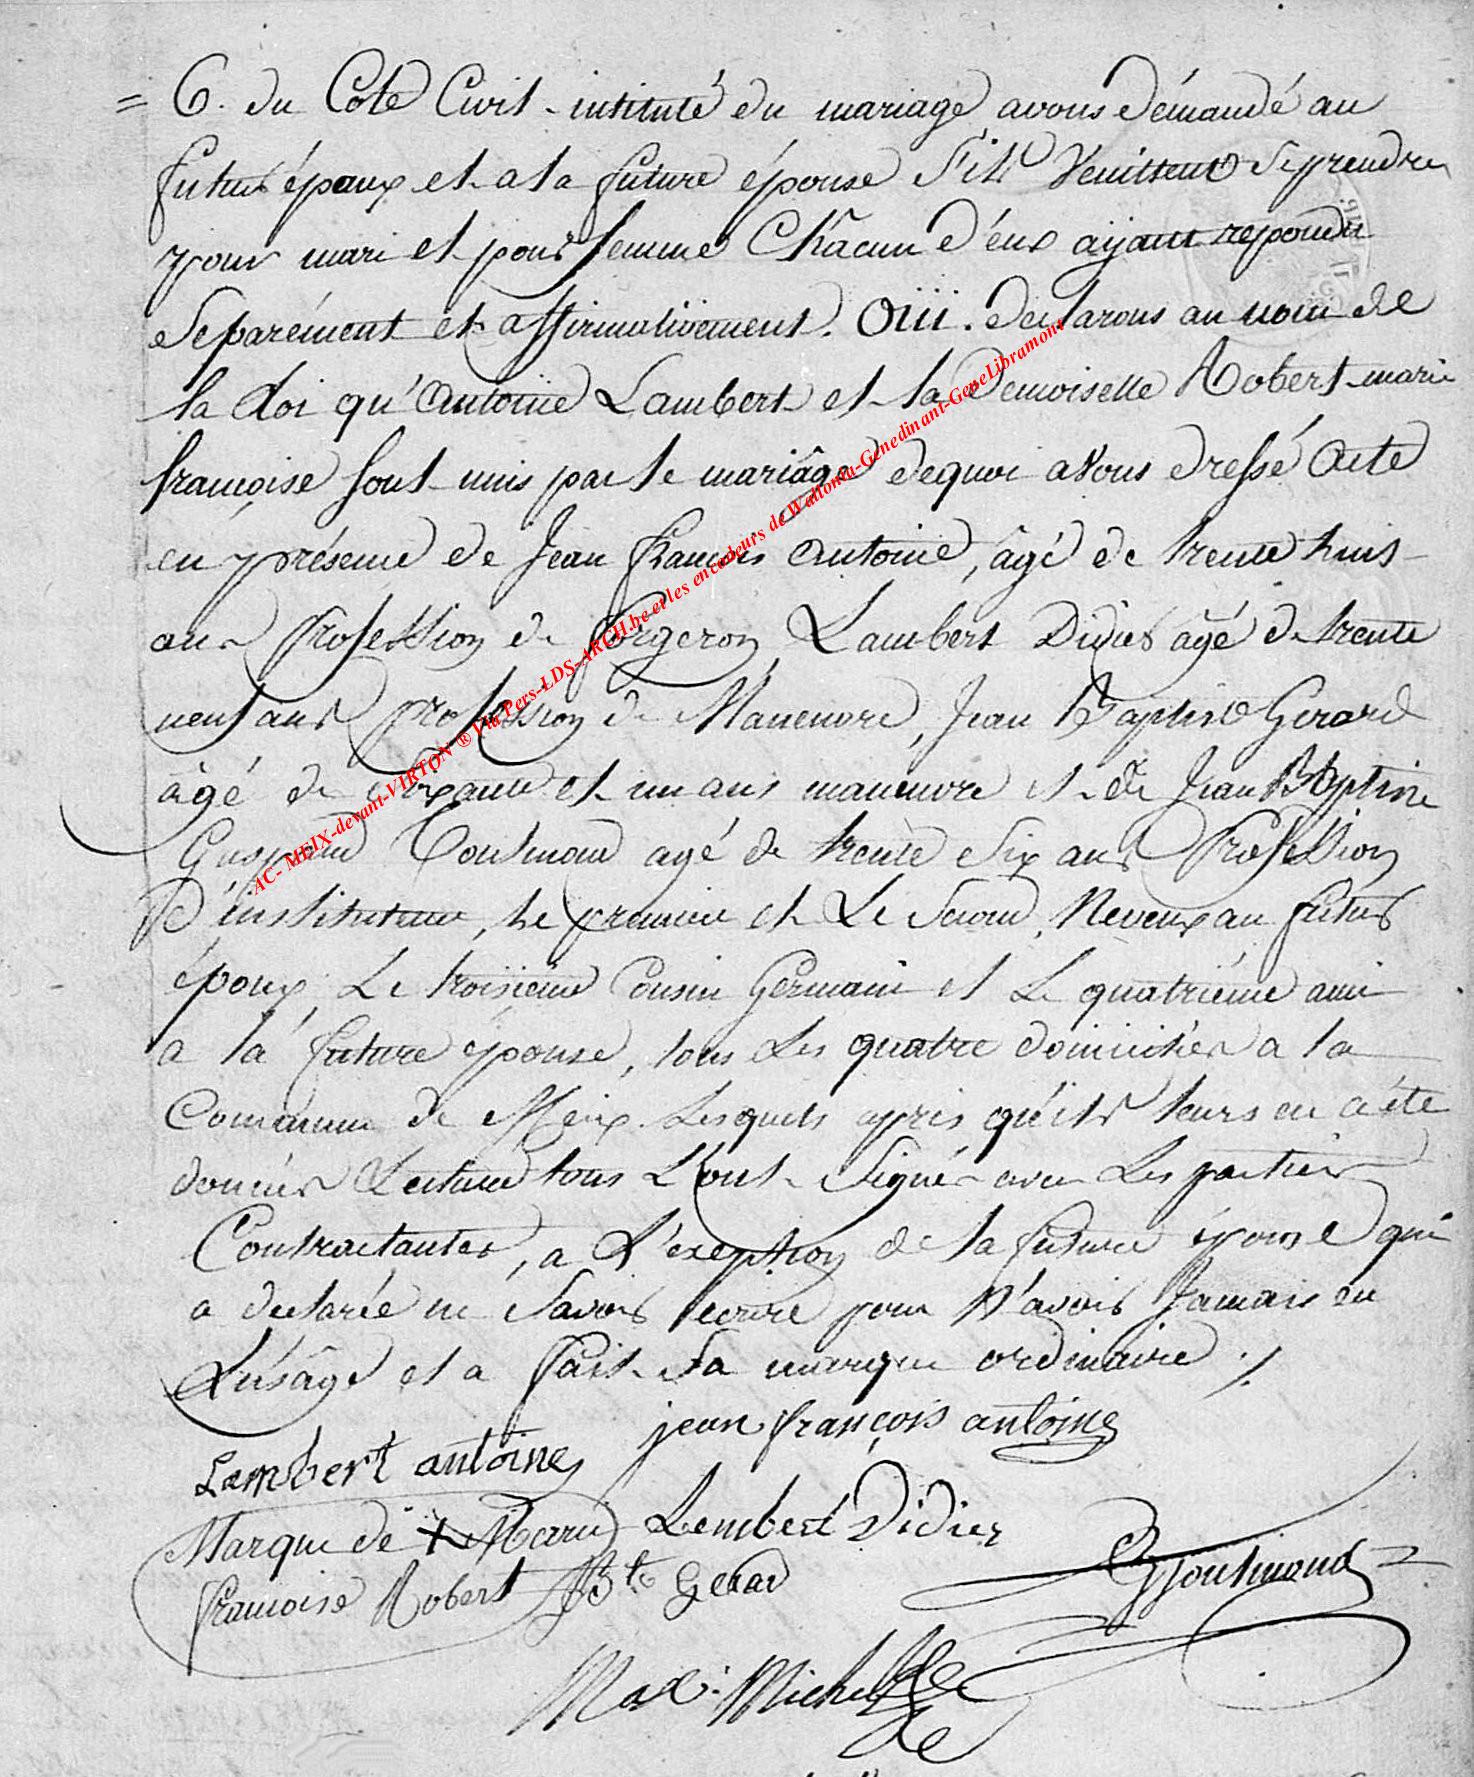 = 6. du Cote Civil - intitulé du mariage avons démandé au
futur épaux et a la future épouse s'ils veuillent se prendre
pour mari et pour femme Chacun d'eux aÿant repondu
Separément et affirmativement. Oüi. declarons au nom de
la Loi qu'Antoine Lambert et la Demoiselle Robert marie
françoise sont unis par le mariâge dequoi avons dressé Acte
en présence de Jean françois antoine, âgé de trente huit
ans Profession de Forgeron, Lambert Didier âgé de trente
neuf ans profession de Maneuvre, Jean Baptiste Gerard
âgé de soixante et un ans maneuvre et de Jean Baptiste
Gaspard Toulmond agé de trente Six ans Profession
D'instituteur, le premier et Le Second, Neveux au futur
époux, Le troisiéme Cousin Germain et Le quatriéme ami
a la future épouse, tous Les quatre domiciliés a la
Commune de Meix. Lesquels aprés qu'ils leurs en a été
donnés Lecture tous L'ont Signé avec Les parties
Contractantes, a L'exeption de la future épouse qui
a declarée ne Savoir écrire pour N'avoir Jamais eu
L'usâge et a fait Sa marque ordinaire ./.
jean françois antoine
Lambert antoine
Marque de + Marie Lembert Didier
francoise Robert JBte Gerar
GJoulmond
Max: Michel
AC- MEIX-devant-VIRTON ® Via Pers-LDS-ARCH.be et les encodeurs de Wallonia-Genedinant-GeneLibramont